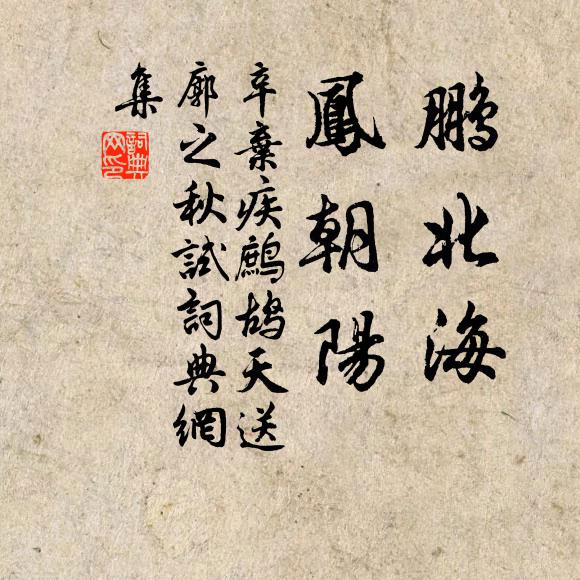 鵬北海
鳳朝陽
辛棄疾鷓鴣天送
廓之秋試詞典網
集
詞典
网印